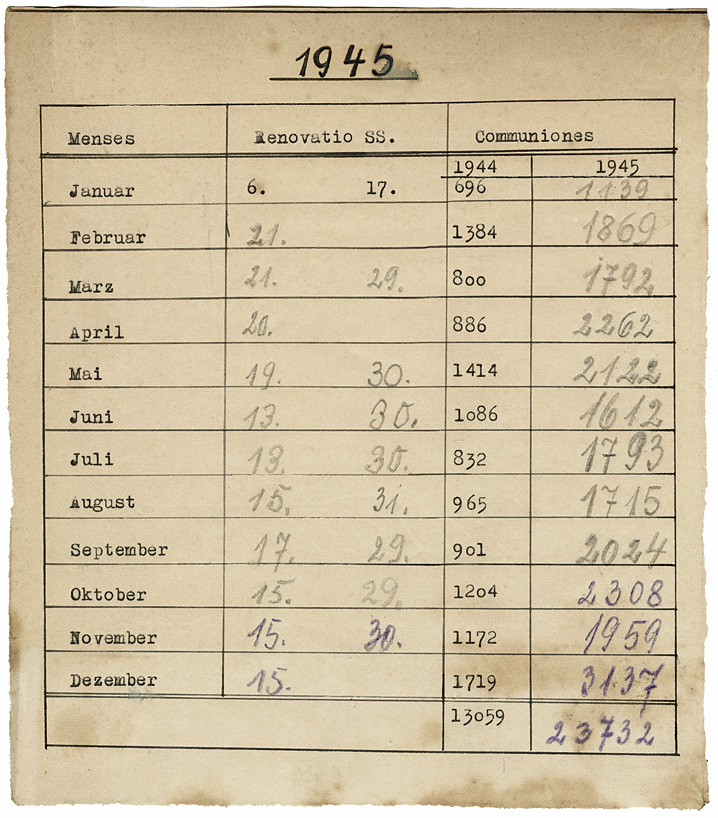 1945
Menses Renovatio SS. Communiones
1944 1945
Januar 6. 17. 696 1139
Februar 21. 1384 1869
März 21. 29. 800 1792
April 20. 886 2262
Mai 19. 30. 1414 2122
Juni 13. 30. 1086 1612
Juli 13. 30. 832 1793
August 15. 31. 965 1715
September 17. 29. 901 2024
Oktober 15. 29. 1204 2308
November 15. 30. 1172 1959
Dezember 15. 1719 3137
13059 23732